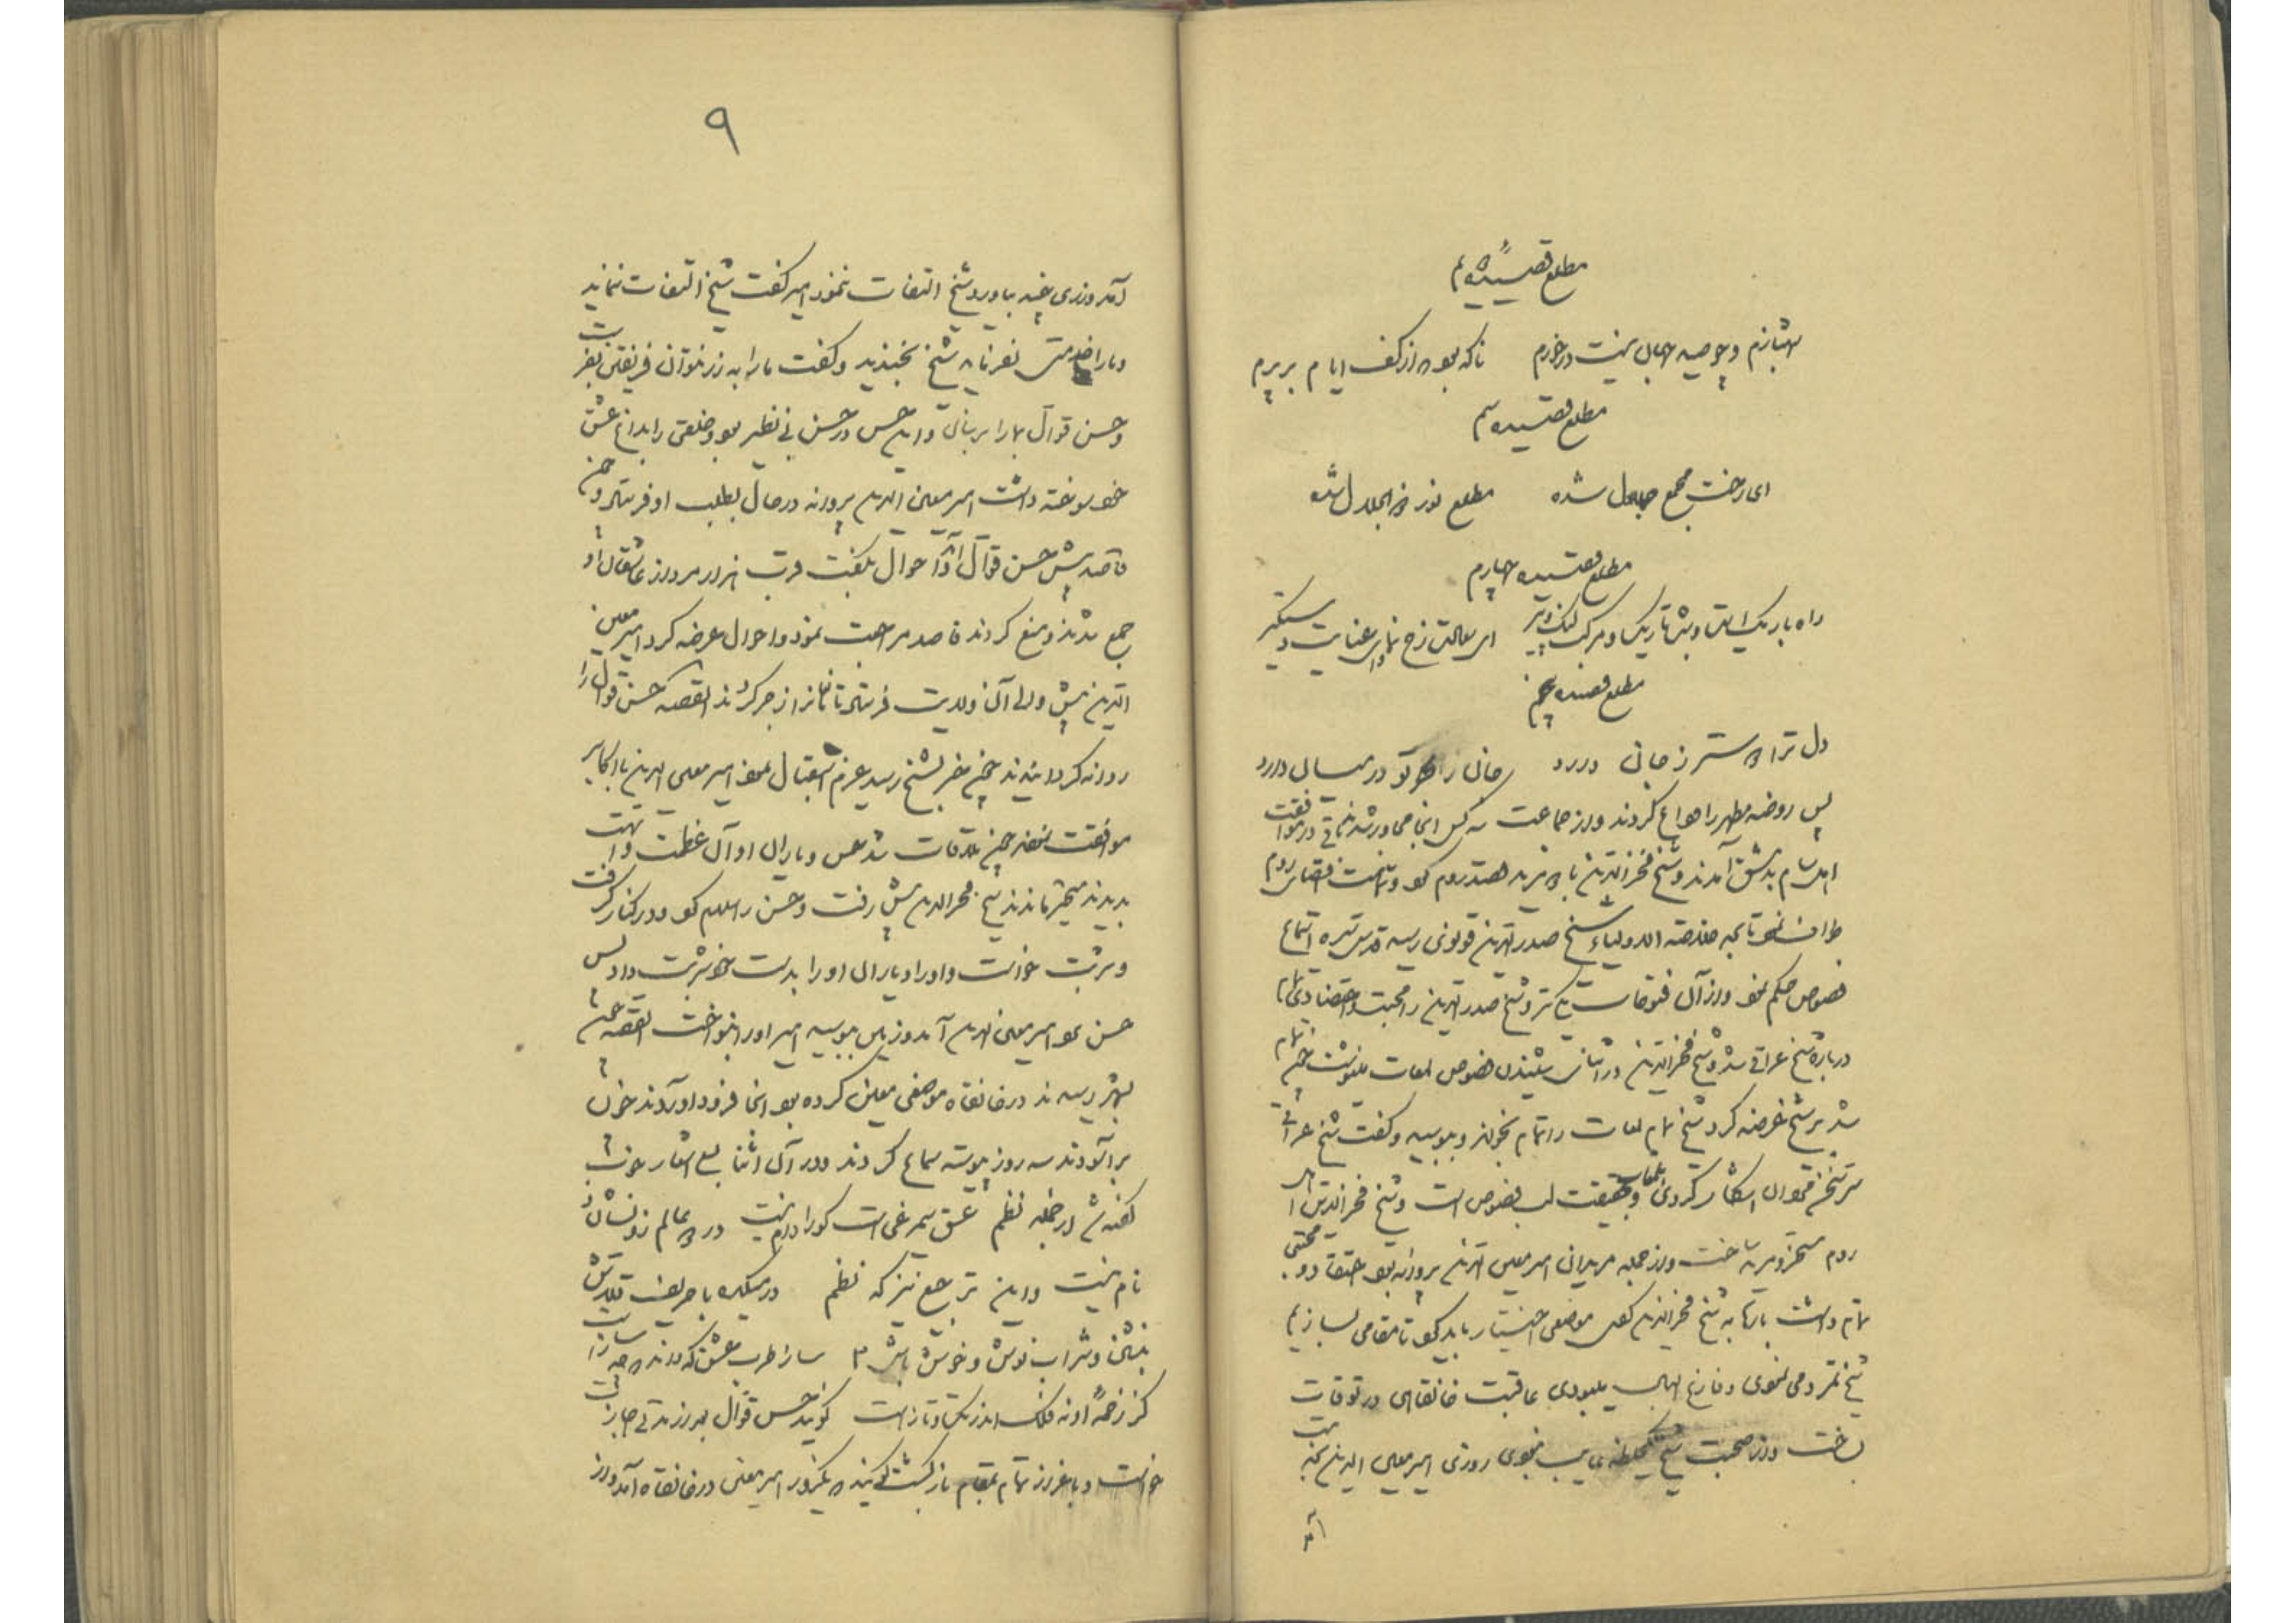 مطلع قصیدهٔ دویم
شهبازم و چو صید جهان نیست درخورم ناگه بود که از کف ایام برپرم
مطلع قصیده سیم
ای رخت مجمع جمال شده مطلع نور ذوالجلال شده
مطلع قصیده چهارم
راه باریک است و شب تاریک و مرکب لنگ و پیر ای سعادت رخ نمای و ای عنایت دستگیر
مطلع قصیده پنجم
دل ترا دوستر ز جان دارد جان ز بهر تو در میان دارد
پس روضه مطهر را وداع کردند و از جماعت سه کس آنجا مجاور شدند باقی در موافقت
اهل شام بدمشق آمدند و شیخ فخرالدین با دو مرید قصد روم کرد و تا اقصای روم
طواف نمود تا بخدمت خلاصة الاولیاء شیخ صدرالدین قونوی رسید قدس سره استماع
فصوص حکم نمود و از آن فتوحات و شیخ صدرالدین را محبت و اعتقادی تمام
درباره شیخ عراقی شد و شیخ فخرالدین در اثنای شنیدن فصوص لمعات می‌نوشت چون تمام
شد بر شیخ عرضه کرد شیخ تمام لمعات را تمام بخواند و ببوسید و گفت شیخ عراقی
سر سخن مردان آشکار کردی و لمعات بحقیقت لب فصوص است و شیخ فخرالدین را اهل
روم مسخر و مرید ساخت و از جمله مریدان امیر معین الدین پروانه بود اعتقاد و محبتی
تمام داشت بارها به شیخ فخرالدین گفتی موضعی اختیار باید کرد تا مقامی بسازیم
شیخ تمرد می نمودی و فارغ البال میبودی عاقبت خانقاهی در توقات
بساخت و از صحبت شیخ یک لحظه نمی شکیب نبودی روزی امیر معین الدین بخدمت
آمد
۹
آمد و زری چند بیاورد شیخ التفات ننمود امیر گفت شیخ التفات نمی‌نماید
و ما را خدمتی نفرماید شیخ بخندید و گفت ما را به زر نتوان فریفتن بفرست
و حسن قوال بما رسان و این حسن در حسن بی نظیر بود و خلقی را بداغ عشق
خود سوخته داشت امیر معین الدین پروانه در حال بطلب او فرستاد و چون
قاصد پیش حسن قوال آمد و احوال بگفت قرب هزار مرد از عاشقان او
جمع شدند و منع کردند قاصد مراجعت نمود و احوال عرضه کرد امیر معین
الدین پیش والی آن ولایت فرستاد تا ایشانرا زجر کردند القصه حسن قوال را
روانه گردانیدند چون خبر بشیخ رسید عزم استقبال نمود امیر معین الدین با اکابر
موافقت نمودند چون ملاقات شد حسن و یاران او آن عظمت و ابهت
بدیدند متحیر ماندند شیخ فخرالدین پیش رفت و حسن را سلام کرد و در کنار گرفت
و شربت خواست و او را و یاران او را بدست خود شربت داد پس
حسن نزد امیر معین الدین آمد و زمین ببوسید امیر او را بنواخت القصه چون
بشهر رسیدند در خانقاه موضعی معین کرده بود آنجا فرود آوردند خوان
برآوردند سه روز پیوسته سماع کردند و در آن اثنا بسی اشعار خوب
گفته شد از جمله نظم عشق سیمرغی است کورا دام نیست در دو عالم زو نشان و
نام نیست و این ترجیع نیز که نظم در میکده با حریف قلاش
بنشین و شراب نوش و خوش باش ۳ ساز طرب عشق که داند که چه ساز است
کز زخمهٔ او نه فلک اندر تک و تاز است گویند حسن قوال بعد از مدتی اجازت
خواست و با اعزاز تمام بمقام بازگشت گویند که یکروز امیر معین در خانقاه آمد و از